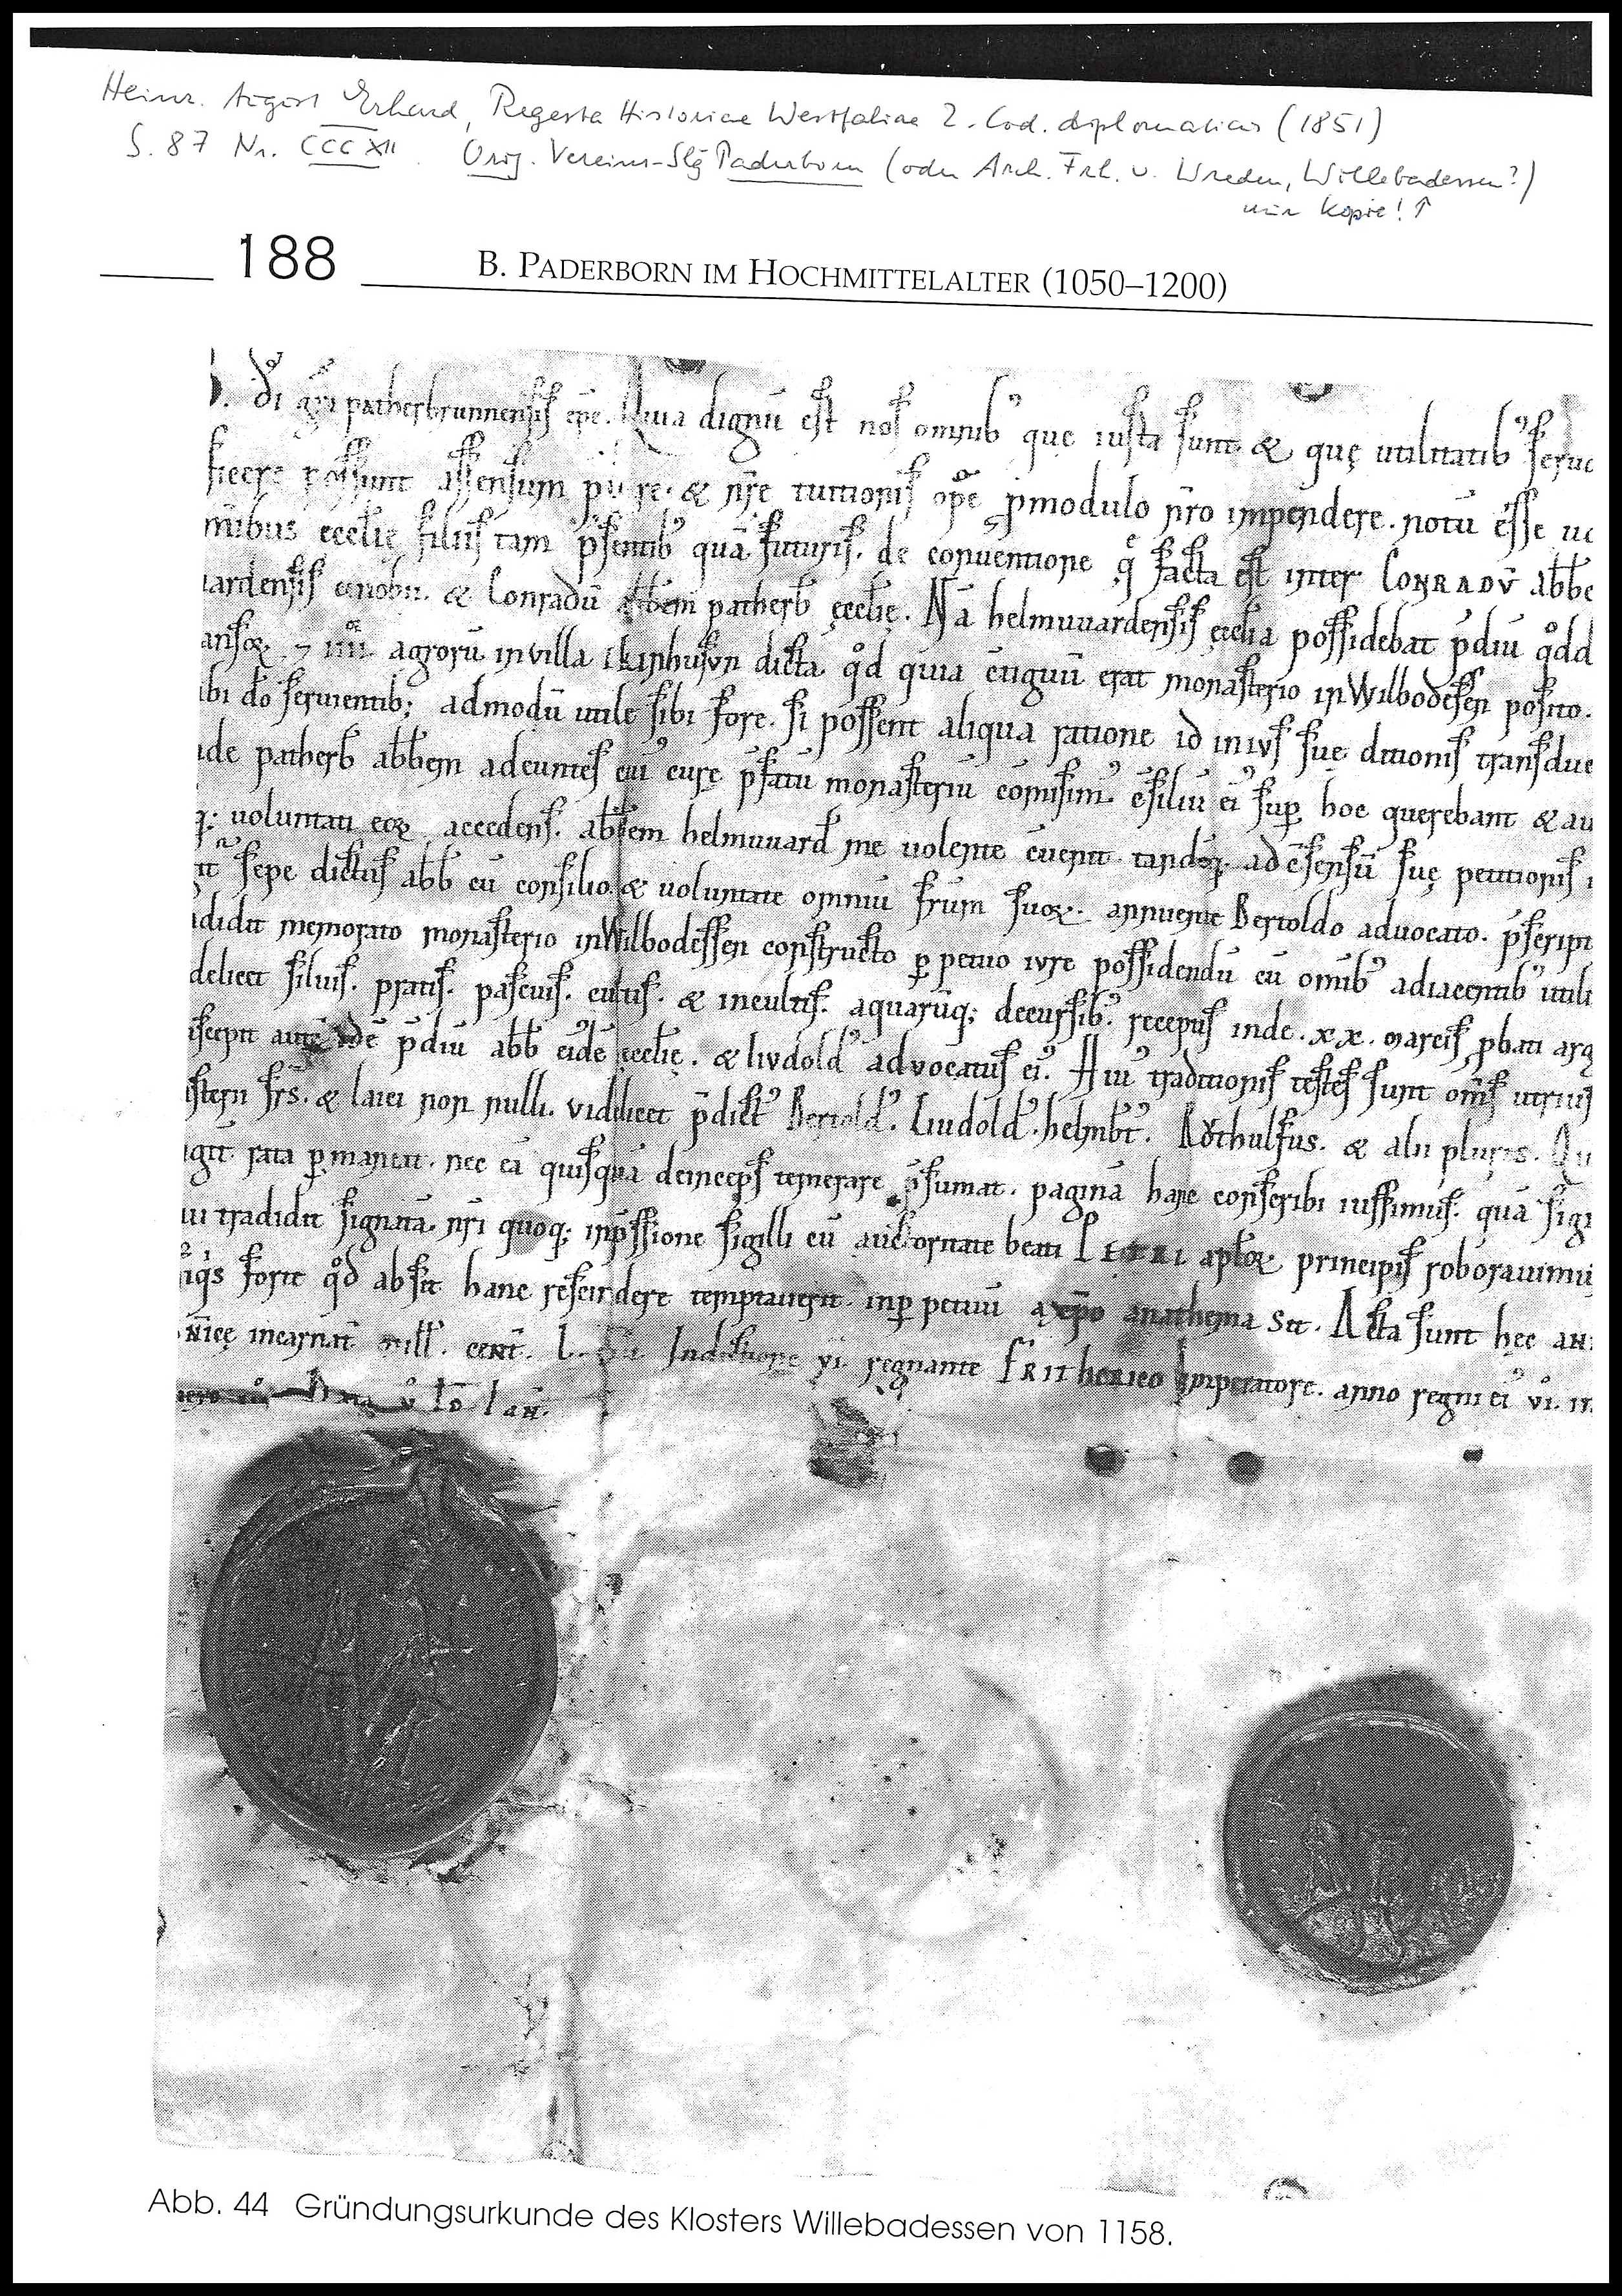 Heinr. August Erhard, Regesta Historiae Westfaliae 2. Cod. diplomaticus (1851)
S. 87 Nr. CCCXII. Orig. Vereins-Slg Paderborn (oder Arch. Frh. v. Wreden, Willebadessen?)
nur Kopie! ↑
188 B. PADERBORN IM HOCHMITTELALTER (1050–1200)
. di gr̄a patherbrunnensis ep̄c. Quia dignū est nos omnib' quę iusta sunt & quę utilitatib' serui
ficere possunt assensum & nr̄e tuitionis opē p modulo nr̄o impendere. notū esse uo
mibus ecclię filiis tam p̄sentib' quā futuris. de conuentione q̄ facta est inter CONRADŪ abbē
uardensis cenobii. & Conradū abbem patherb ęcclię. Nā helmuuardensis ęcclia possidebat p̄diū qd d
ansoꝝ ⁊ iiii agrorū in villa dicta. qd quia c̄tiguū erat monasterio in Wilbodessen posito.
ibi do seruientib; admodū utile sibi fore. si possent aliqua ratione id in ius suę ditionis transduc
ide patherb abbem adeuntes cui curę p̄fatū monasteriū comisim' c̄siliū ei' sup hoc querebant & au
q; uoluntati eoꝝ accedens. abbem helmuuard me uolente c̄uenit tandēq; ad c̄sensū suę petitionis i
it sepe dictus abb cū consilio & uoluntate omniū frūm suoꝝ. annuente Bertoldo aduocato. p̄script
adidit memorato monasterio in Wilbodessen constructo ppetuo iure possidendū cū omib' adiacentib' utili
delicet siluis. pratis. pascuis. cultis. & incultis. aquarūq; decursib'. receptis inde .xx. marcis pbati arg
iscepit autē idē p̄diū abb eidē ęcclię. & liudold' advocatus ei'. Hui' traditionis testes sunt om̄s utrius
isterii frs. & laici non nulli. videlicet p̄dict' Bertold'. Liudold'. helmb̄t'. Athulfus. & alii plures. Qu
igit rata pmaneat. nec eā quisquā deinceps temerare p̄sumat. paginā hanc conscribi iussimus. quā sigi
ui tradidit signatā. nr̄i quoq; inp̄ssione sigilli cū auctoritate beati PETRI aploꝝ principis roborauimu
iqs forte qd absit hanc rescindere temptauerit. inppetuū a xp̄o anathema sit. Acta sunt hęc AN
nicę incarnat̄ mill. cent̄. L. Indictione vi. regnante FRITHERICO Imperatore. anno regni ei' vi. in
Abb. 44 Gründungsurkunde des Klosters Willebadessen von 1158.